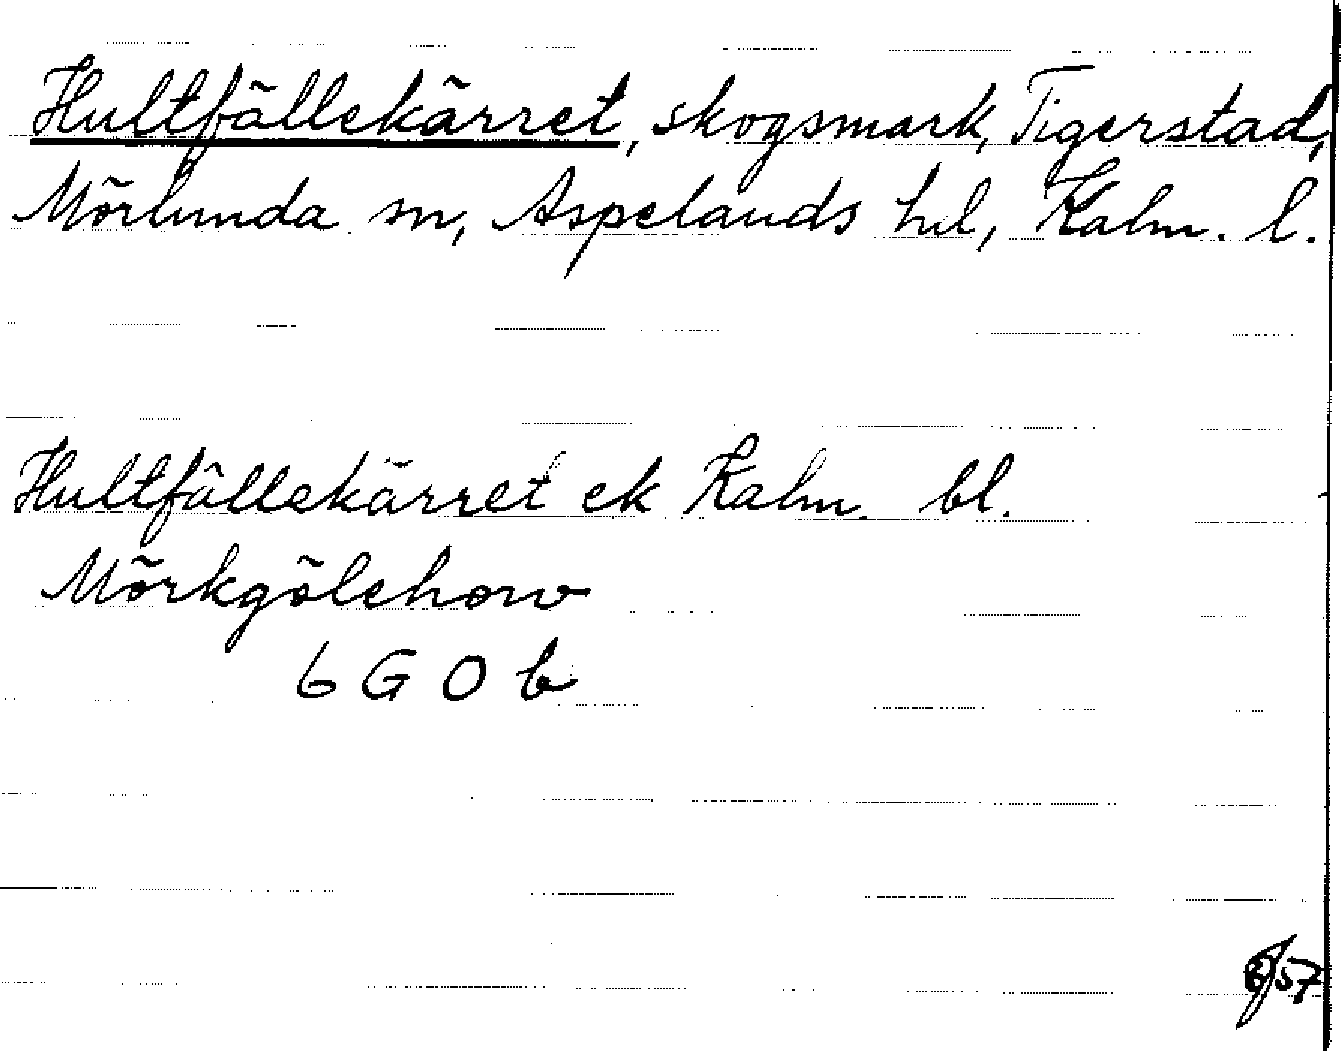 Hultfällekärret, skogsmark, Tigerstad,
Mörlunda sn, Aspelands hd, Kalm. l.
Hultfällekärret ek Kalm. bl.
Mörkgölehorv
6 G 0 b